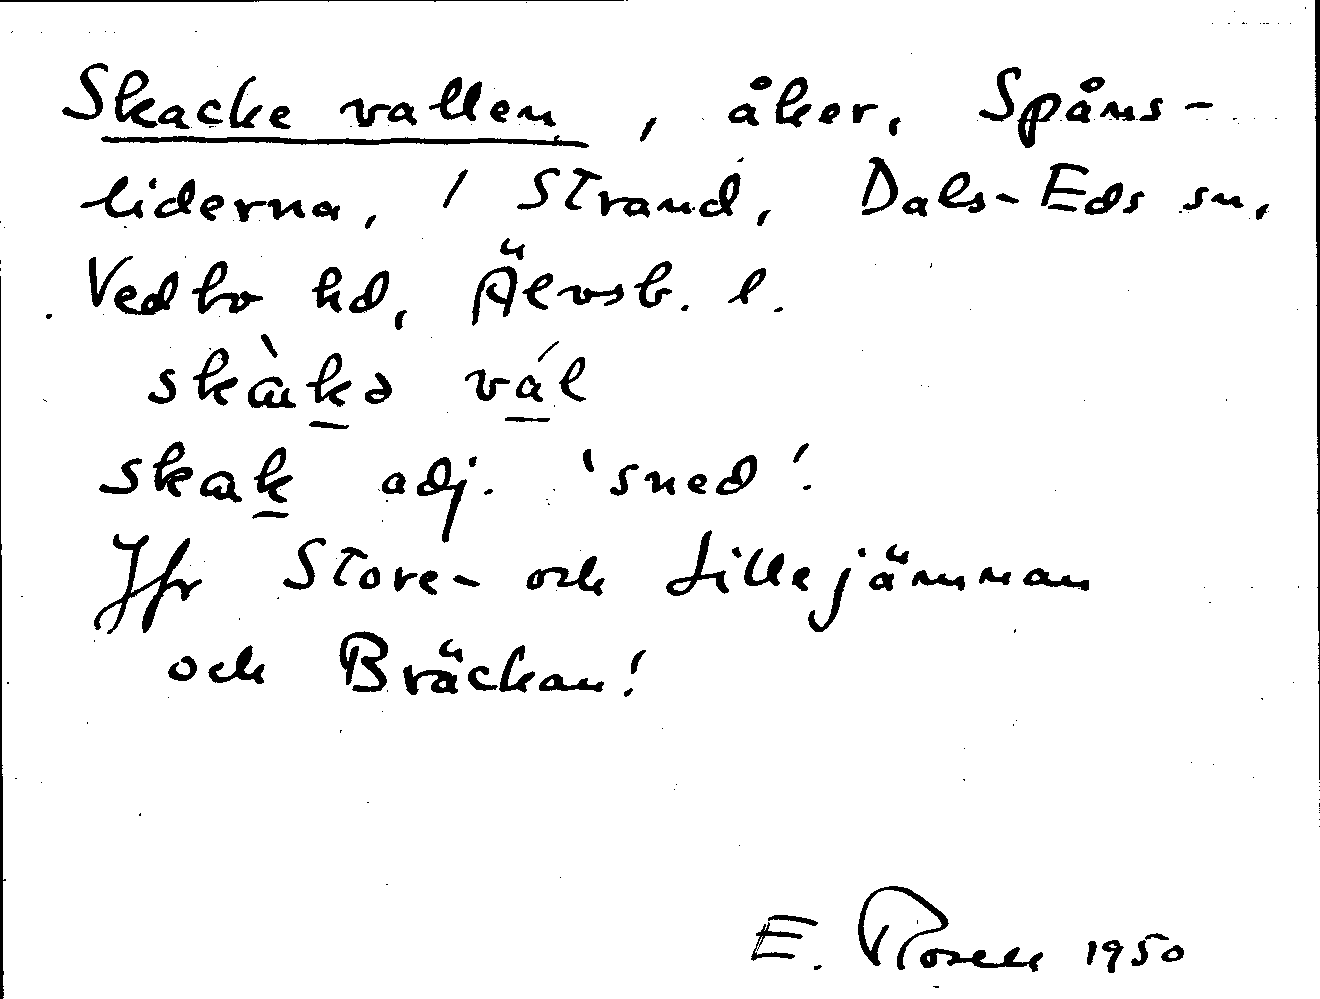 Skacke vallen, åker, Spåns-
liderna, / Strand, Dals-Eds sn,
Vedbo hd, Älvsb. l.
skàkə vál
skak adj. 'sned'.
Jfr Store- och Lillejämnan
och Bräckan!
E. Rosell 1950